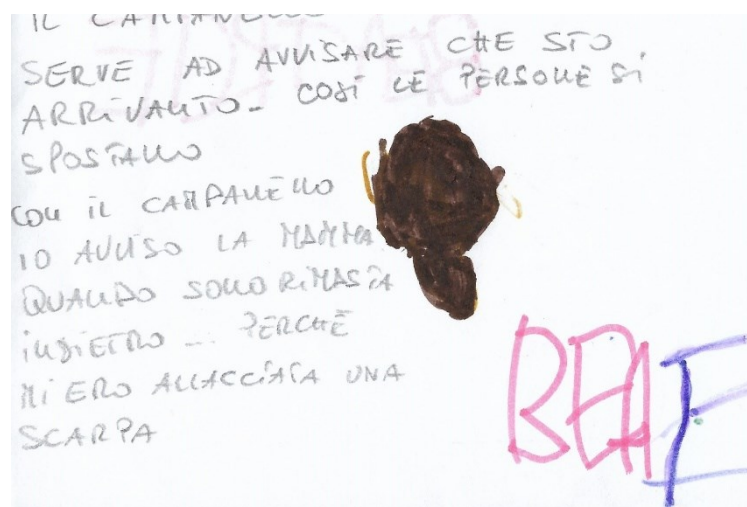 IL CAMPANELLO
SERVE AD AVVISARE CHE STO
ARRIVANTO. COSÌ LE PERSONE SI
SPOSTANO
CON IL CAMPANELLO
IO AVVISO LA MAMMA
QUANDO SONO RIMASTA
INDIETRO ... PERCHÈ
MI ERO ALLACCIATA UNA
SCARPA
BEA